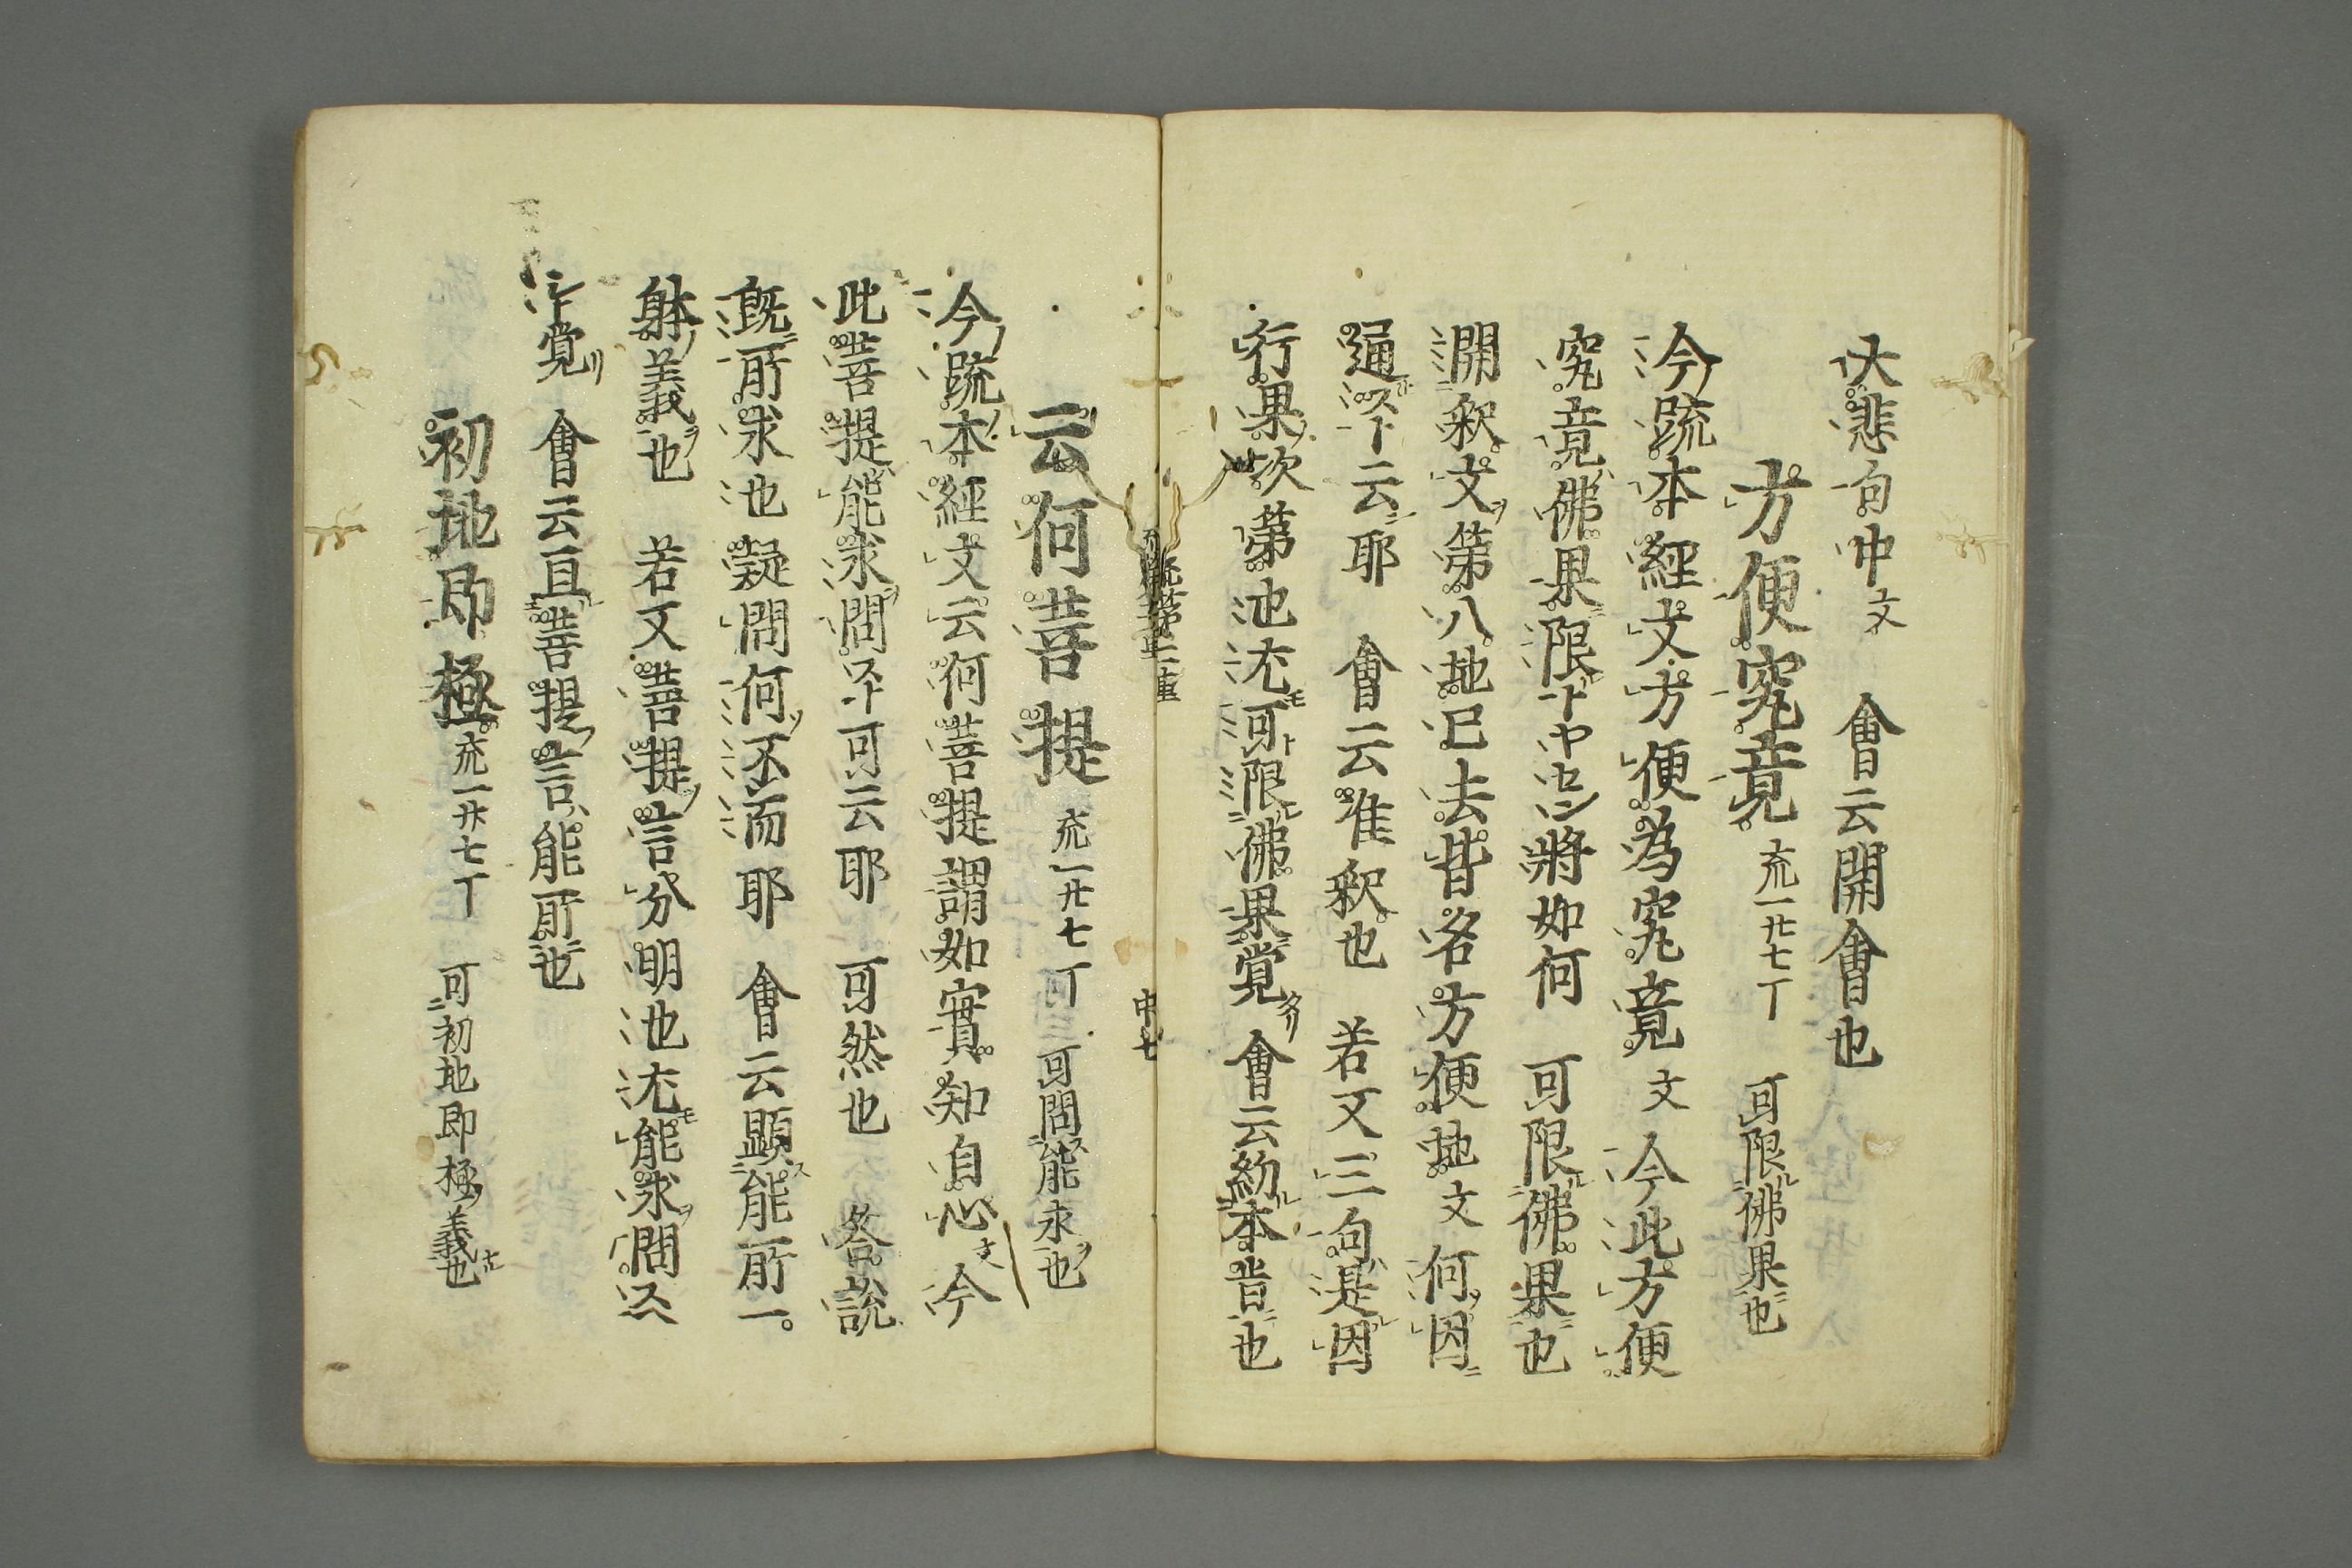 大悲句中文 會云開會也
方便究竟 疏一廿七丁 可限佛果也
今疏本經文方便為究竟文 今此方便
究竟佛果限 將如何 可限佛果也
開釈文第八地已去皆名方便地文 何因
通ズト云耶 會云准釈也 若又三句是因
行果次第也尤可限佛果覚 會云約本旨也
疏第三重二重
中七
云何菩提 疏一廿七丁 可問能求也
今疏本經文云何菩提謂如實知自心文 今
此菩提能求問スト可云耶 可然也 答説
既所求也疑問何不而耶 會云顕能所一
躰義也 若又菩提言分明也尤能求問ス
ト覚 會云直菩提言能所也
初地即極 疏一廿七丁 可初地即極義也